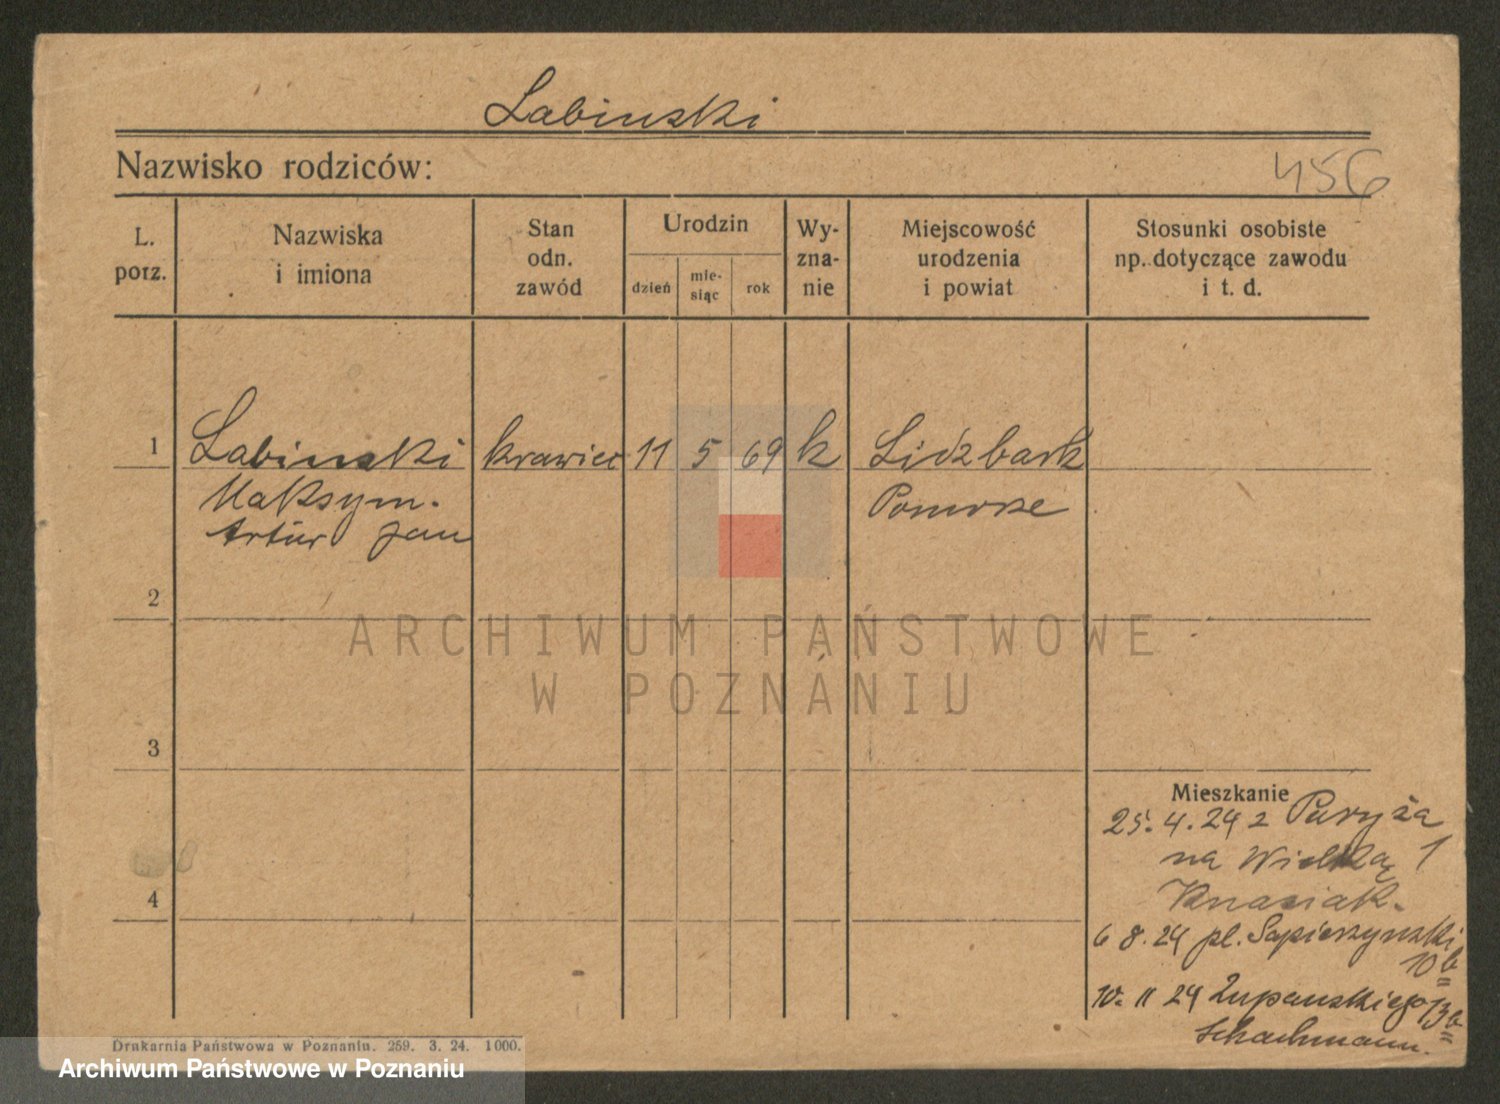 Labinski
Nazwisko rodziców:
456
L. porz.
Nazwiska i imiona
Stan odn. zawód
Urodzin
dzień
mie-siąc
rok
Wy-zna-nie
Miejscowość urodzenia i powiat
Stosunki osobiste np. dotyczące zawodu i t. d.
1 Labinski krawiec 11 5 69 k Lidzbark
Maksym. Pomorze
Artur Jan
2
ARCHIWUM PAŃSTWOWE
W POZNANIU
3
Mieszkanie
25. 4. 24 z Paryża
na Wielką 1
4
6 8. 24 pl. Sapierzynski
10 b
10. 11 24 Zupanskiego 13 b
Schachmann.
Drukarnia Państwowa w Poznaniu. 259. 3. 24. 1000.
Archiwum Państwowe w Poznaniu